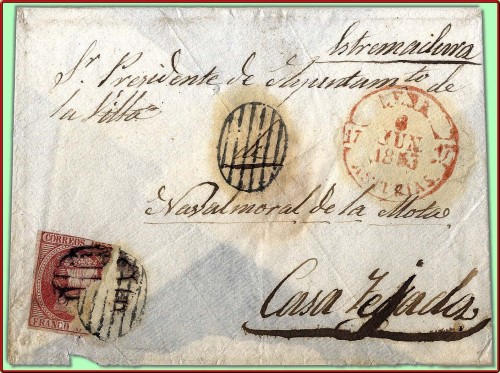 Estremadura
Sr. Presidente de Ayuntamto de
la Villa
LENA
8
JUN.
1853
17 17
ASTURIAS
Navalmoral de la Mata
CORREOS
FRANCO
Casa Tejada